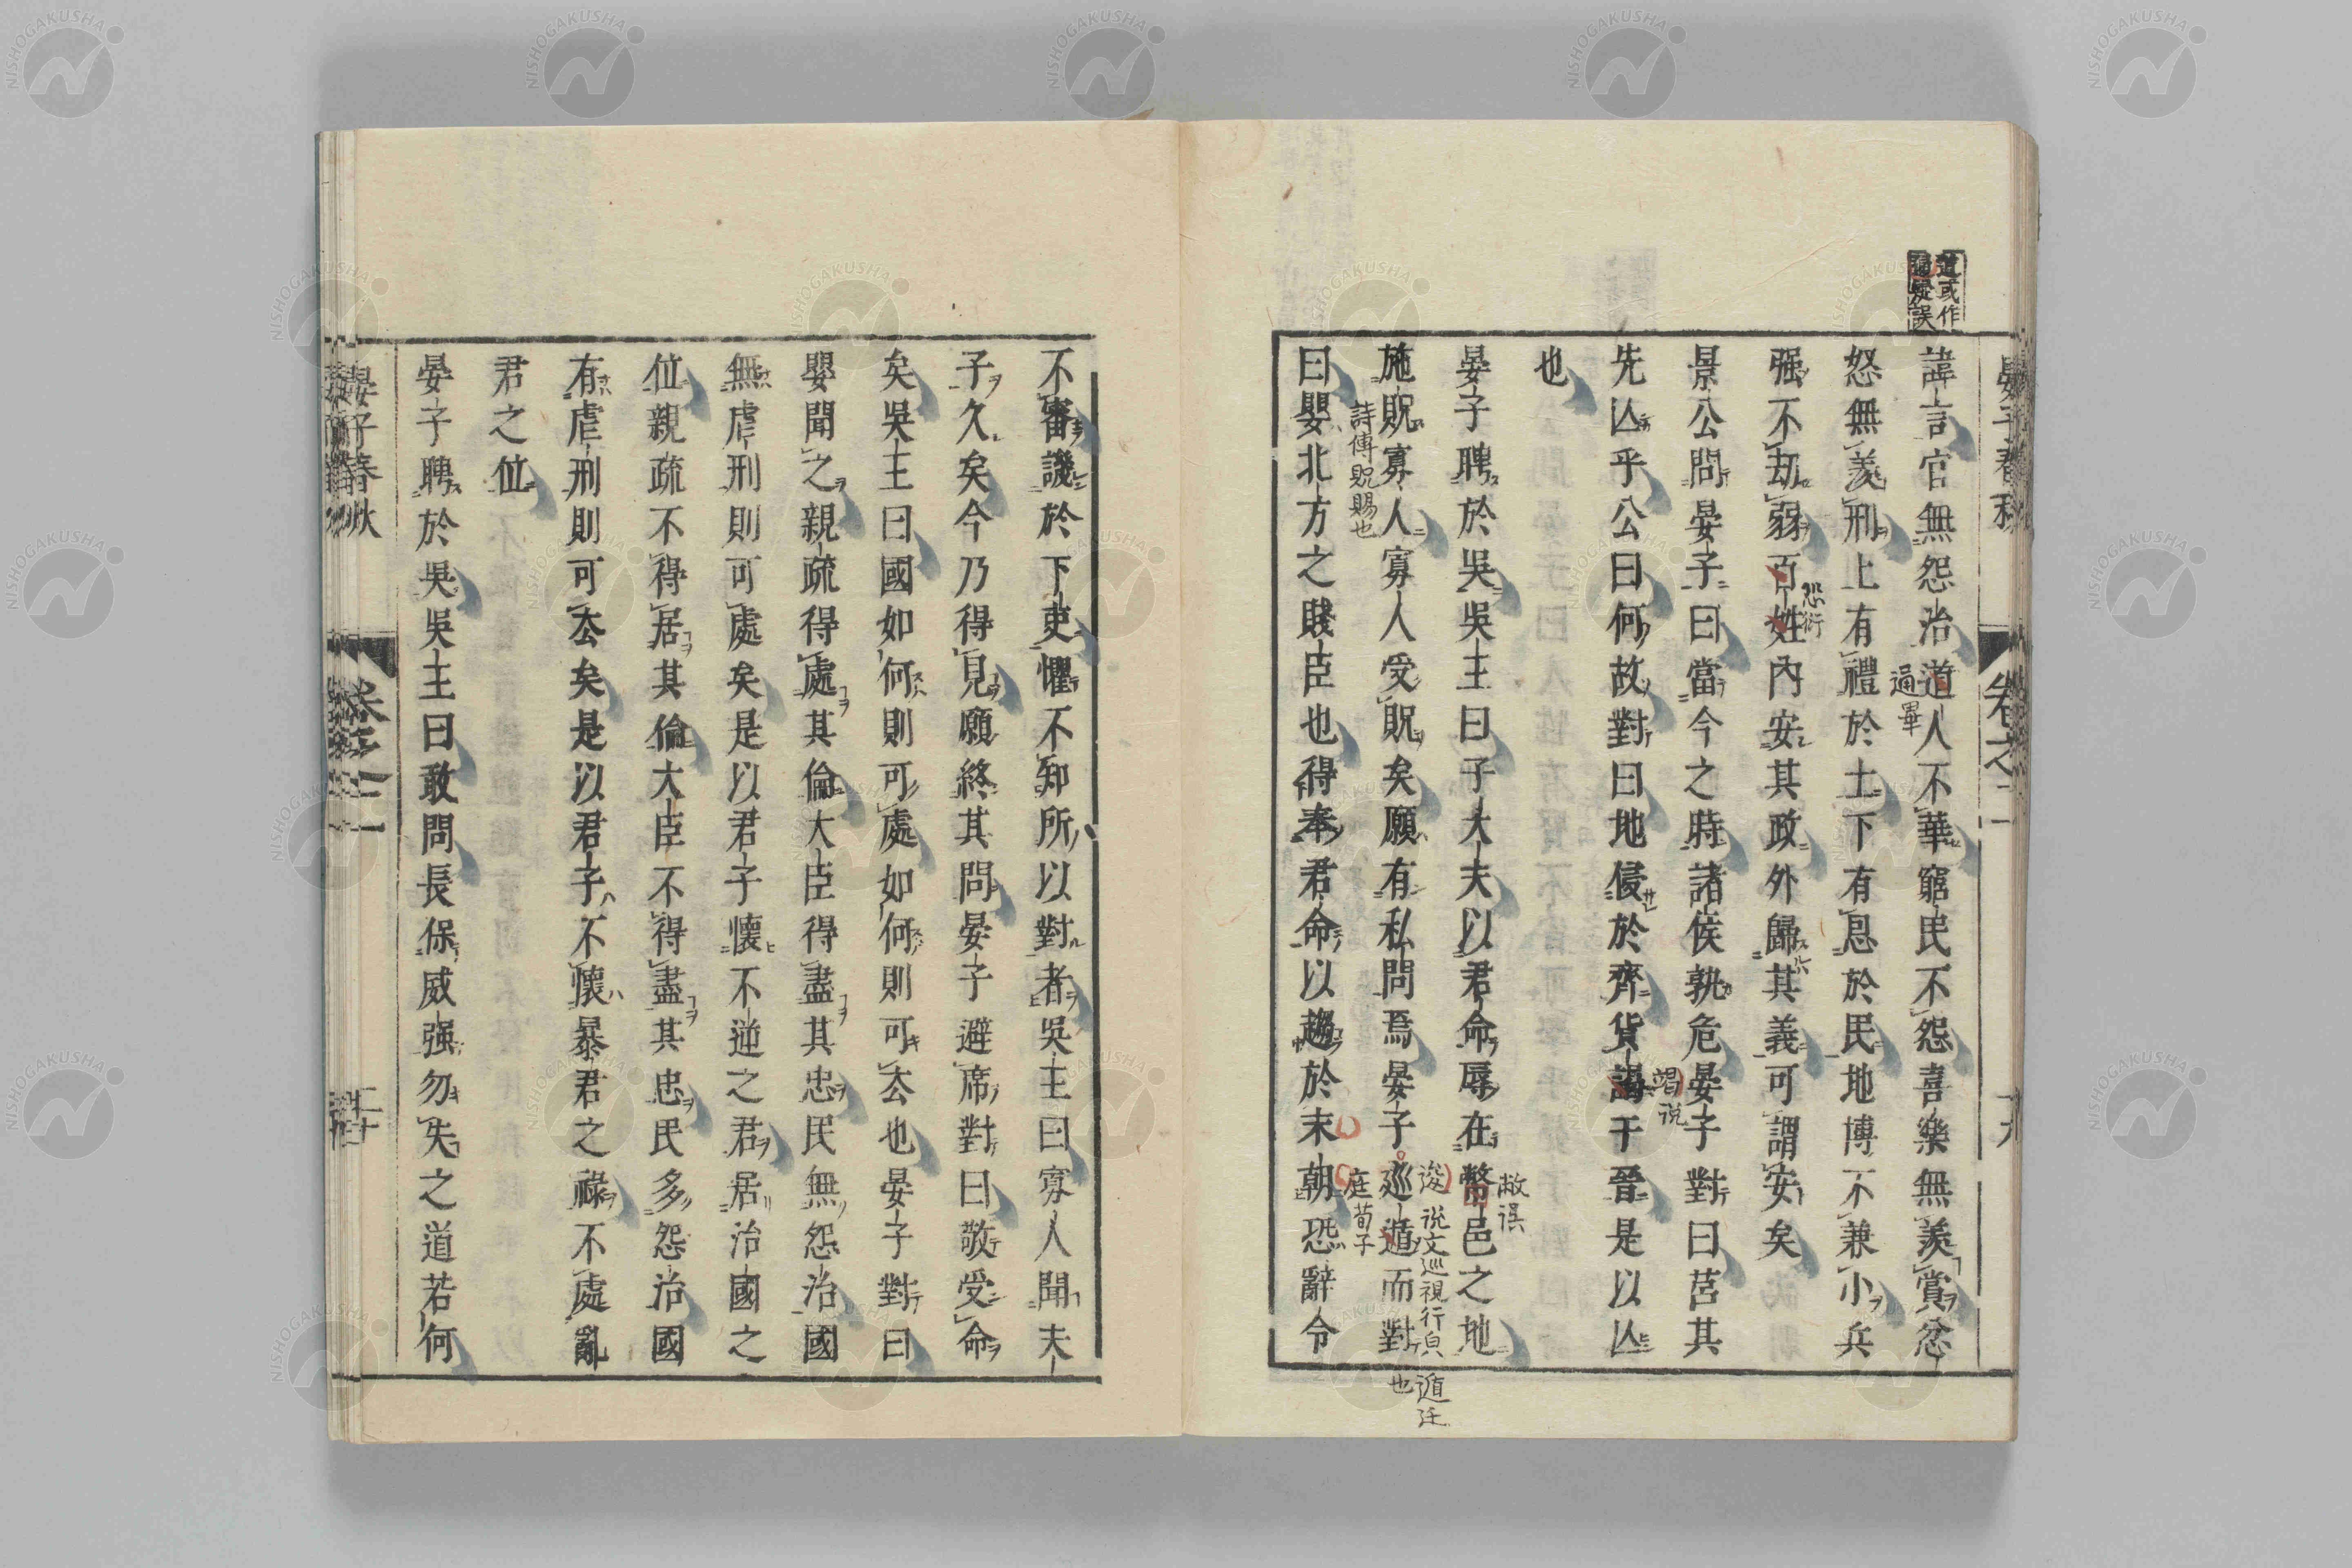 道或作
過疑誤
諱言官無怨治道人不華窮民不怨喜樂無羨賞忿
通畢
怒無羨刑上有禮於士下有恩於民地博不兼小兵
强不劫弱百姓內安其政外歸其義可謂安矣
恐衍
景公問晏子曰當今之時諸侯孰危晏子對曰莒其
先亾乎公曰何故對曰地侵於齊貨謁于晉是以亾
竭 説
也
晏子聘於吳吳王曰子大夫以君命辱在幣邑之地
敝誤
施貺寡人寡人受貺矣願有私問焉晏子巡遁而對
逡 说文巡視行皃 遁迁也
詩傳貺賜也
曰嬰北方之賤臣也得奉君命以趨於末朝恐辭令
庭荀子
晏子春秋
卷之二
十九
不審譏於下吏懼不知所以對者吳王曰寡人聞夫
子久矣今乃得見願終其問晏子避席對曰敬受命
矣吳王曰國如何則可處如何則可去也晏子對曰
嬰聞之親疏得處其倫大臣得盡其忠民無怨治國
無虐刑則可處矣是以君子懷不逆之君居治國之
位親疏不得居其倫大臣不得盡其忠民多怨治國
有虐刑則可去矣是以君子不懷暴君之祿不處亂
君之位
晏子聘於吳吳王曰敢問長保威强勿失之道若何
晏子春秋